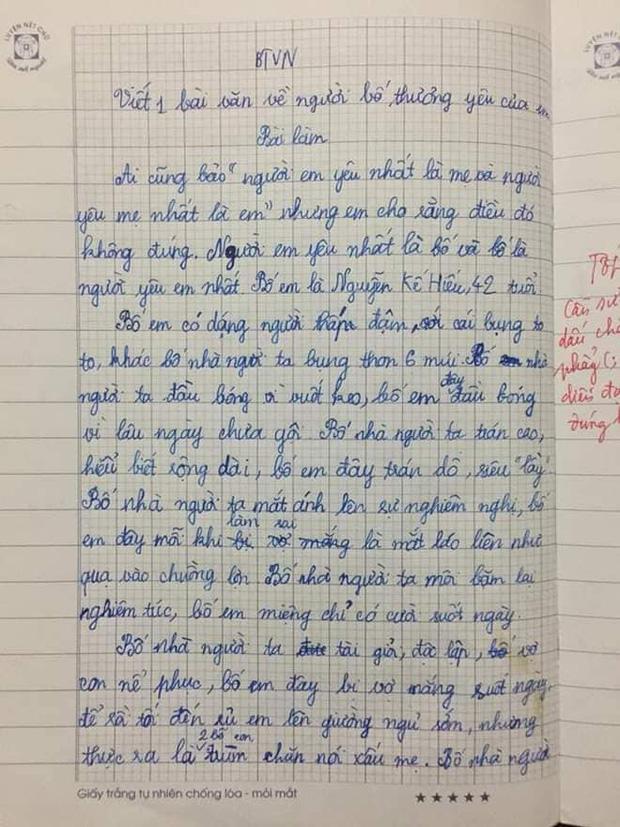 LUYỆN NÉT CHỮ
BTVN
Viết 1 bài văn về người bố thương yêu của em
Bài làm
Ai cũng bảo "người em yêu nhất là mẹ và người
yêu mẹ nhất là em" nhưng em cho rằng điều đó
không đúng. Người em yêu nhất là bố và bố là
người yêu em nhất. Bố em là Nguyễn Kế Hiếu, 42 tuổi
Bố em có dáng người thấp đậm, với cái bụng to
to, khác bố nhà người ta bụng thon 6 múi. Bố nhà
người ta đầu bóng vì vuốt keo, bố em đây đầu bóng
vì lâu ngày chưa gội. Bố nhà người ta trán cao,
hiểu biết rộng dài, bố em đây trán dồ, siêu "lầy"
Bố nhà người ta mắt ánh lên sự nghiêm nghị, bố
em đây mỗi khi làm sai là mắt láo liên như
quạ vào chuồng lợn Bố nhà người ta môi bặm lại
nghiêm túc, bố em miệng chỉ có cười suốt ngày.
Bố nhà người ta tài giỏi, độc lập, vợ
con nể phục, bố em đây bị vợ mắng suốt ngày,
để rồi tối đến rủ em lên giường ngủ sớm, nhưng
thực ra là 2 bố con trùm chăn nói xấu mẹ. Bố nhà người
Giấy trắng tự nhiên chống lóa - mỏi mắt
★★★★★
Cần sử
dấu
diễn đạ
đúng